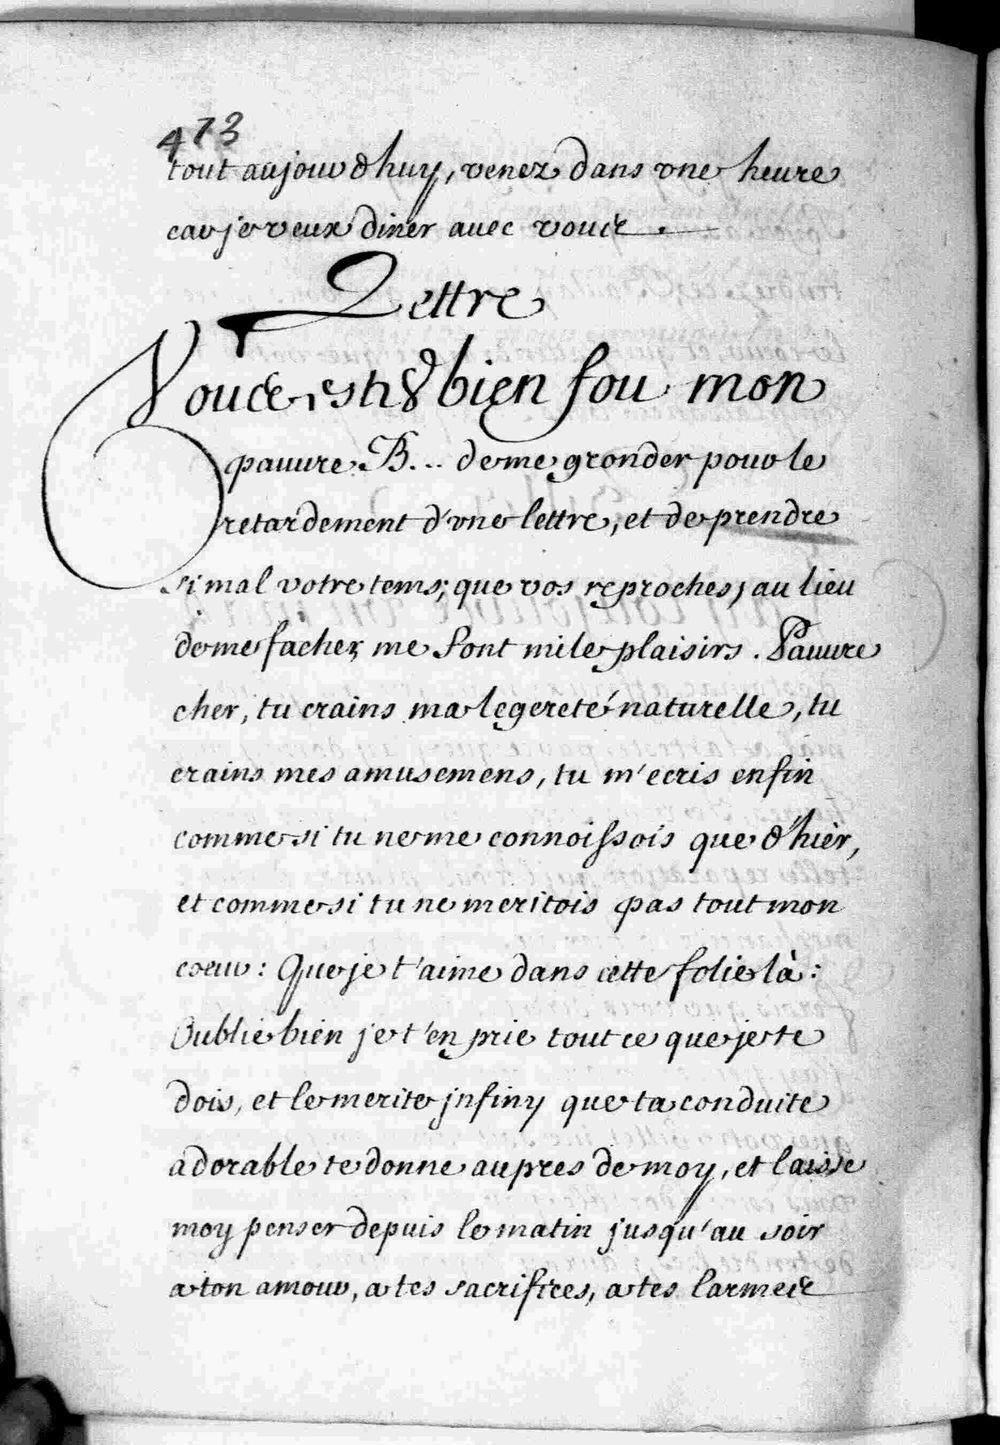 473
tout aujourdhuy, venez dans vne heure
car je veux diner avec vous.
Lettre
Vous estes bien fou mon
pauure B... de me gronder pour le
retardement d'vne lettre, et de prendre
si mal votre tems, que vos reproches, au lieu
de me facher, me sont mile plaisirs. Pauure
cher, tu crains ma legereté naturelle, tu
crains mes amusemens, tu m'ecris enfin
comme si tu ne me connoissois que d'hier,
et comme si tu ne meritois pas tout mon
coeur: Que je t'aime dans cette folie là:
Oublie bien je t'en prie tout ce que je te
dois, et le merite jnfiny que ta conduite
adorable te donne aupres de moy, et laisse
moy penser depuis le matin jusqu'au soir
a ton amour, a tes sacrifices, a tes larmes